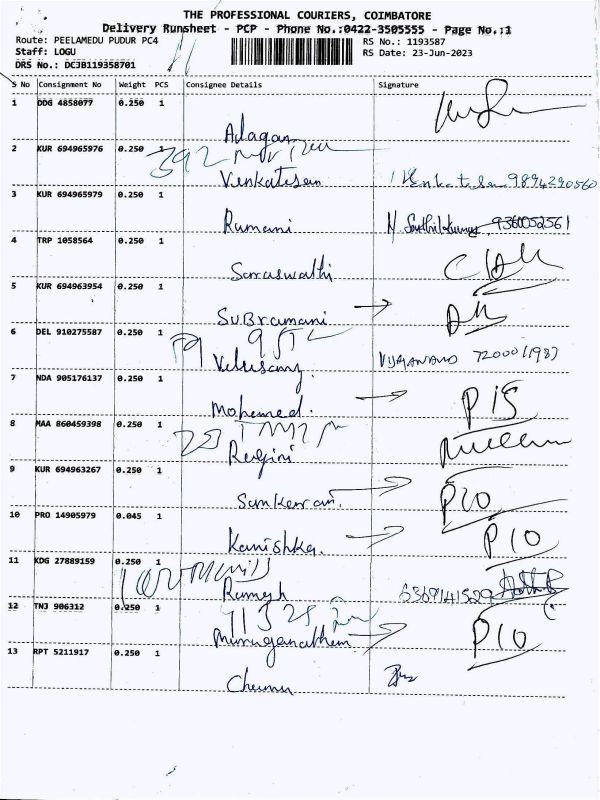 THE PROFESSIONAL COURIERS, COIMBATORE
Delivery Runsheet - PCP - Phone No.:0422-3505555 - Page No.:1
Route: PEELAMEDU PUDUR PC4 RS No.: 1193587
Staff: LOGU RS Date: 23-Jun-2023
DRS No.: DCJB119358701
S No Consignment No Weight PCS Consignee Details Signature
1 DDG 4858077 0.250 1
Alagan
2 KUR 694965976 0.250 1
392
Venkatesan Venkatesan 9894290560
3 KUR 694965979 0.250 1
Ramani N. Senthilkumar 9360052561
4 TRP 1058564 0.250 1
Saraswathi
5 KUR 694963954 0.250 1
SUBramani
6 DEL 910275587 0.250 1
Velusamy. VIJAYANAND
7 NDA 905176137 0.250 1
Mohemed. P15
8 MAA 860459398 0.250 1
Ragini
9 KUR 694963267 0.250 1
Sankaran. P10
10 PRO 14905979 0.045 1
Kanishka. P10
11 KDG 27889159 0.250 1
Ramesh 6369141529
12 TNJ 906312 0.250 1
Muruganathan P10
13 RPT 5211917 0.250 1